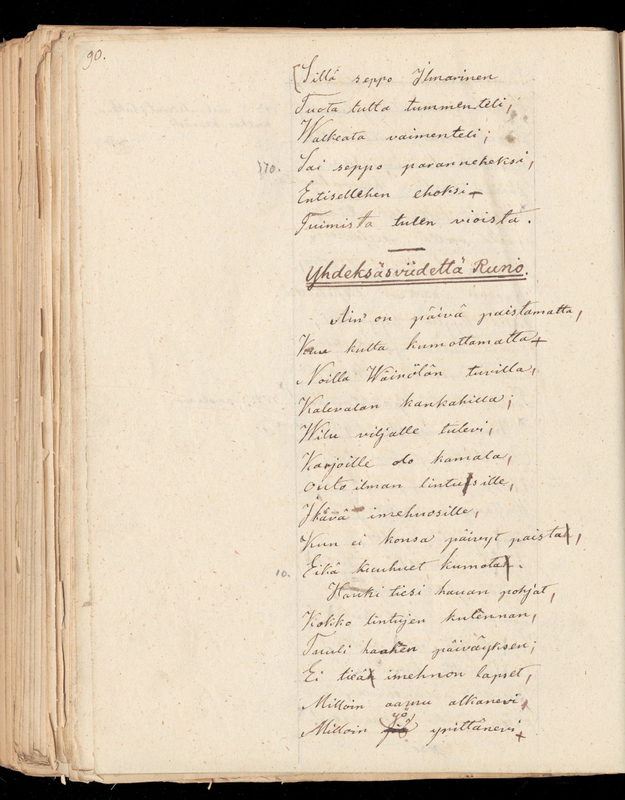 90.
Sillä seppo Ilmarinen
Tuota tulta tummenteli,
Walkeata vaimenteli;
370. Sai seppo paranneheksi,
Entisellehen ehoksi
Tuimista tulen vioista.
Yhdeksäsviidettä Runo.
Ain' on päivä paistamatta,
Kuu kulta kumottamatta
Noilla Wäinölän tuvilla,
Kalevalan kankahilla;
Wilu viljalle tulevi,
Karjoille olo kamala,
Outo ilman lintusille,
Ikävä imehnosille,
Kun ei konsa päivyt paista,
10. Eikä kuuhuet kumota.
Hauki tiesi hauan pohjat,
Kokko lintujen kulennan,
Tuuli haahen päiväyksen;
Ei tieä imehnon lapset,
Milloin aamu alkanevi,
Milloin yö yrittänevi